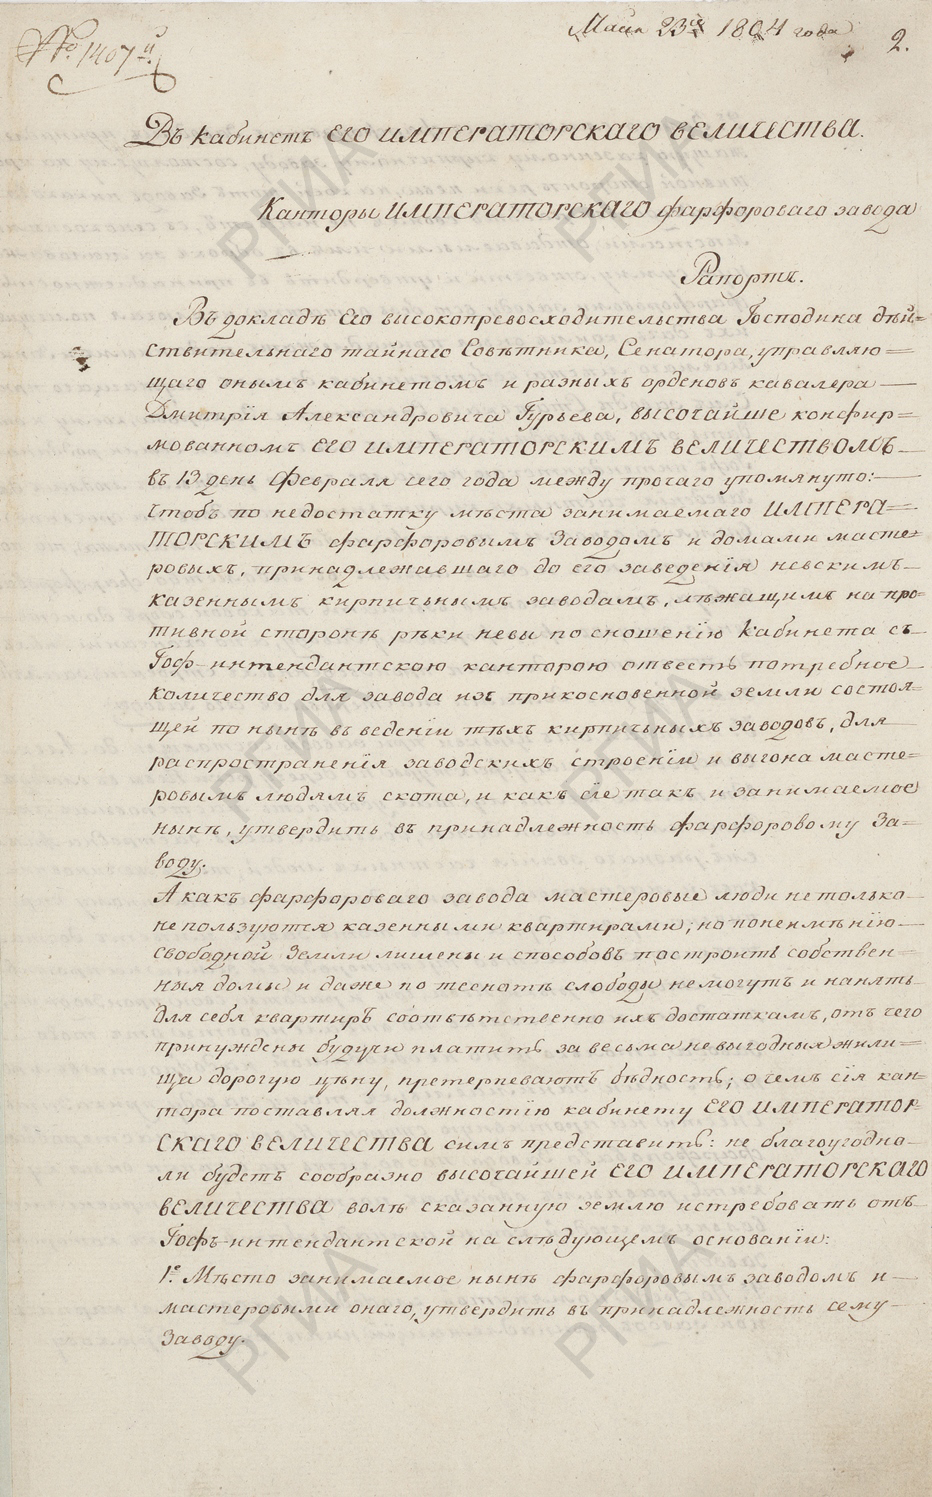 № 1407й.
Маия 23го 1804 года
2.
Въ кабинетъ ЕГО ИМПЕРАТОРСКАГО ВЕЛИЧЕСТВА.
Канторы ИМПЕРАТОРСКАГО фарфороваго завода
Рапортъ.
Въ докладѣ Его высокопревосходительства Господина дѣй=
ствительнаго тайнаго Совѣтника, Сенатора, управляю=
щаго онымъ кабинетомъ и разныхъ орденовъ кавалера
Дмитрїя Александровича Гурьева, высочайше конфир=
мованномъ ЕГО ИМПЕРАТОРСКИМЪ ВЕЛИЧЕСТВОМЪ
въ 13 день февраля сего года между прочаго упомянуто:
Чтобъ по недостатку мѣста занимаемаго ИМПЕРА=
ТОРСКИМЪ фарфоровымъ Заводомъ и домами масте=
ровыхъ, принадлежавшаго до его заведенїя невскимъ
казеннымъ кирпичнымъ заводамъ, лѣжащимъ на про=
тивной сторонѣ рѣки невы по сношенїю Кабинета съ
Гоф-интендантскою канторою отвесть потребное
количество для завода изъ прикосновенной земли состоя=
щей по нынѣ въ веденїи тѣхъ кирпичныхъ заводовъ, для
распространенїя заводскихъ строенїи и выгона масте=
ровымъ людямъ скота, и какъ сїе такъ и занимаемое
нынѣ, утвердить въ принадлежность фарфоровому За=
воду.
А какъ фарфороваго завода мастеровые люди не только
не пользуются казенными квартирами; но по неимѣнїю
свободной Земли лишены и способовъ построить собствен=
ныя домы и даже по теснотѣ слободы немогутъ и нанять
для себя квартиръ соотвѣтственно ихъ достаткамъ, отъ чего
принуждены будучи платить за весьма невыгодныя жили=
ща дорогую цѣну, претерпеваютъ бѣдность; о чемъ сїя кан=
тора поставляя должностїю кабинету ЕГО ИМПЕРАТОР=
СКАГО ВЕЛИЧЕСТВА симъ представить: не благоугодно
ли будетъ сообразно высочайшей ЕГО ИМПЕРАТОРСКАГО
ВЕЛИЧЕСТВА волѣ сказанную землю истребовать отъ
Гофъ-интендантской на слѣдующемъ основанїи:
1е. Мѣсто занимаемое нынѣ фарфоровымъ заводомъ и
мастеровыми онаго, утвердить въ принадлежность сему
Заводу.
РГИА
РГИА
РГИА
РГИА
РГИА
РГИА